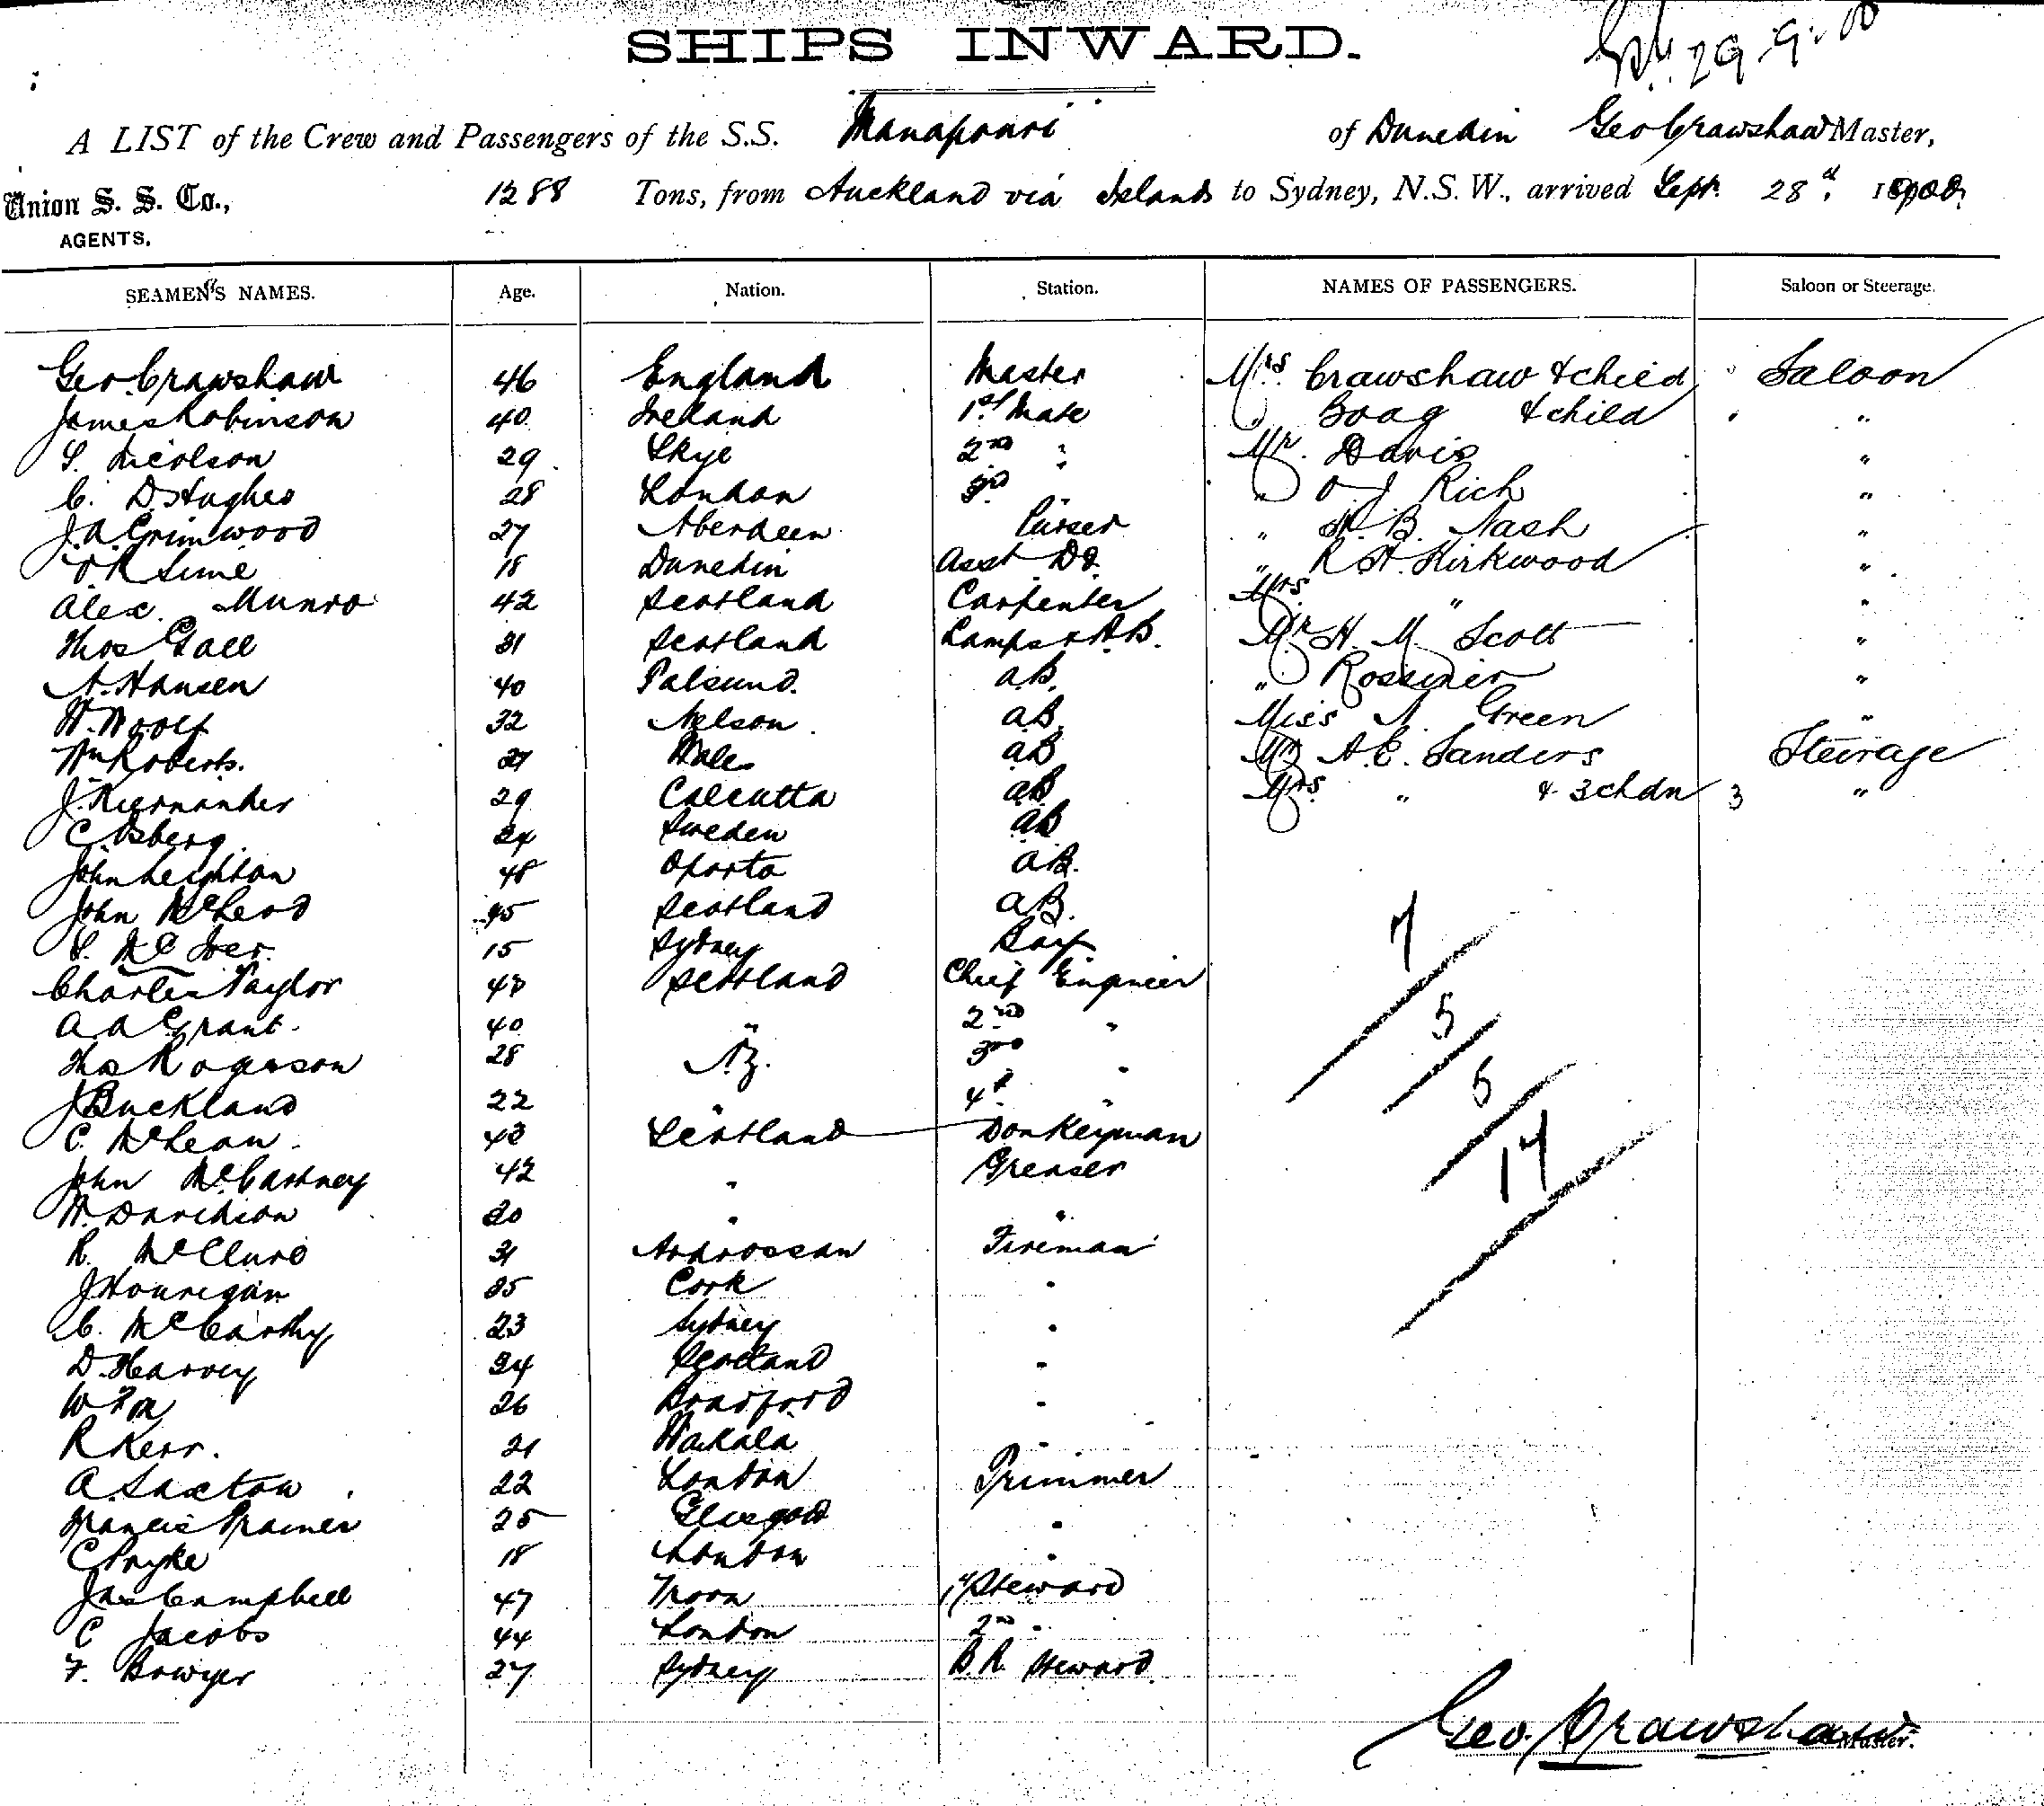 SHIPS INWARD.
29-9-00
A LIST of the Crew and Passengers of the S.S. Manapouri of Dunedin Geo Crawshaw Master,
Union S. S. Co., AGENTS. 1288 Tons, from Auckland via Islands to Sydney, N.S.W., arrived Sept. 28th. 1900.
SEAMEN'S NAMES. Age. Nation. Station. NAMES OF PASSENGERS. Saloon or Steerage.
Geo Crawshaw 46 England Master Mrs Crawshaw & child Saloon
James Robinson 40 Ireland 1st Mate " Boag & child "
S. Nicolson 29 Skye 2nd " Mr. Davis "
C. D. Hughes 28 London 3rd " " O J Rich "
J. A. Grimwood 27 Aberdeen Purser " B. Nash "
Sime 18 Dunedin Asst Do. " R H. Kirkwood "
Alex. Munro 42 Scotland Carpenter Mrs. " "
Thos Gall 31 Scotland Lamps & A.B. Mr H. M. Scott "
A. Hansen 40 A.B. " "
W. Woolf 32 Nelson A.B. Miss A. Green "
Wm Roberts. Wales AB Mr A. E. Sanders Steerage
J. Kiernander 29 Calcutta AB Mrs. " & 3 chdn 3 "
C. Osberg. Sweden AB
John Leighton 48 Oporto A.B.
John McLeod Scotland A.B. 7
S. McIver. 15 Sydney Boy
Charles Taylor Scotland Chief Engineer
A A Grant. 40 " 2nd " 5
Thos Rogerson 28 N.Z. 3rd "
J Buckland 22 " 4th " 5
C. McLean. 43 Scotland Donkeyman
John McCartney 42 " Greaser 17
W. Davidson " "
R. McClure 31 Ardrossan Fireman
J Hourigan 35 Cork "
C. McCarthy 23 Sydney "
D. Harvey 34 Scotland "
26 Bradford "
R Kerr. 21 "
A. Saxton 22 London Trimmer
Francis Trainer 25 Glasgow "
C Pryke 18 London "
Jas Campbell 47 Troon 1st Steward
C Jacobs 44 London 2nd "
F. Bowyer 27 Sydney B. R. Steward
Geo. Crawshaw Master.